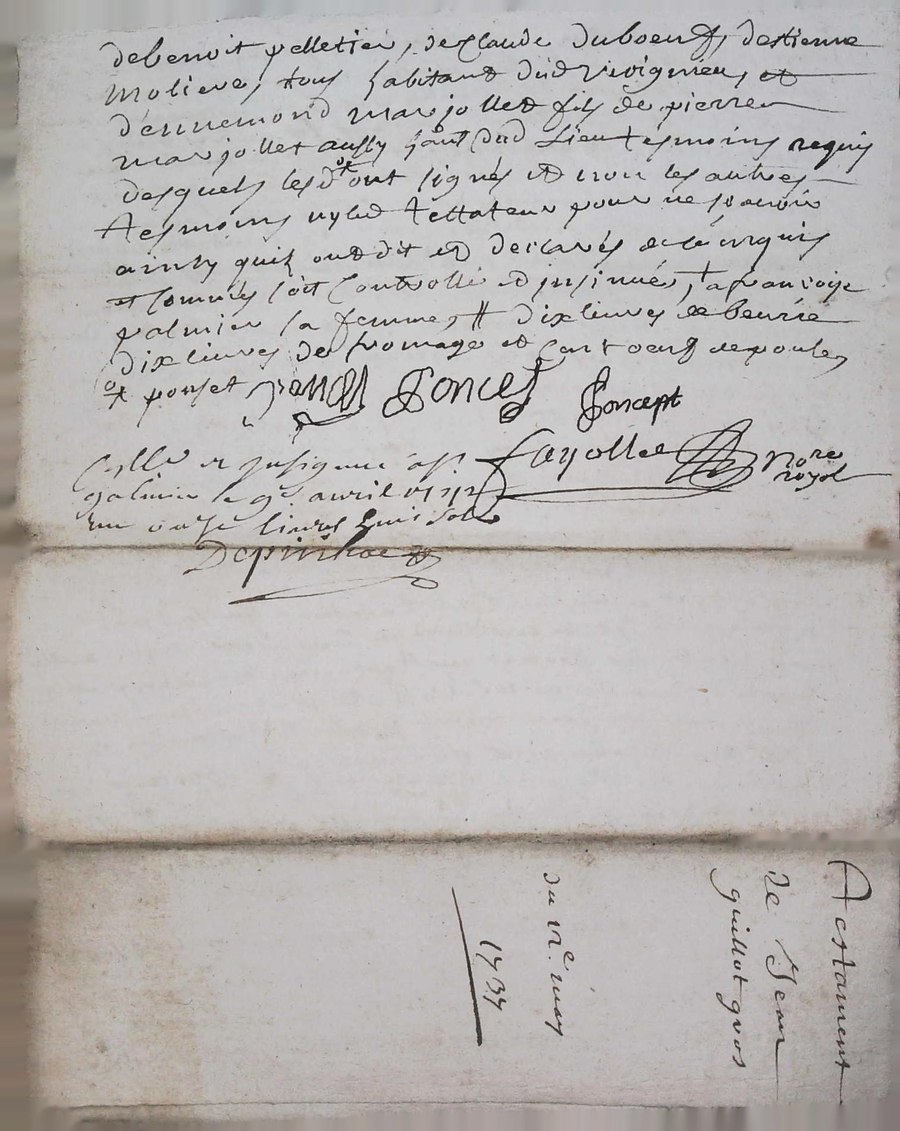 de benoit pelletier, de Claude duboeuf, destienne
moliere, tous habitans dud Virignieu, et
d'ennemond marjollet fils de pierre
marjollet aussy hant dud lieu tesmoins requis
desquels les d ont signés et non les autres
tesmoins ny led testateur pour ne scavoir
ainsy quil ont dit et declarés de ce enquis
et sommés soit controllé et insinué, + a francoise
palmier sa femme, # dix livres de beurre
dix livres de fromage et cent oeufs de poule,
ponset Poncet Ponsept
fayolle Nore
royal
galmier le avril
onze livres sols
Testament
de Jean
guillot gros
du VIe. may
1737